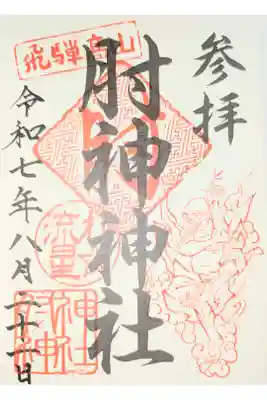 参拝
飛騨高山
肘神神社
令和七年八月二十一日